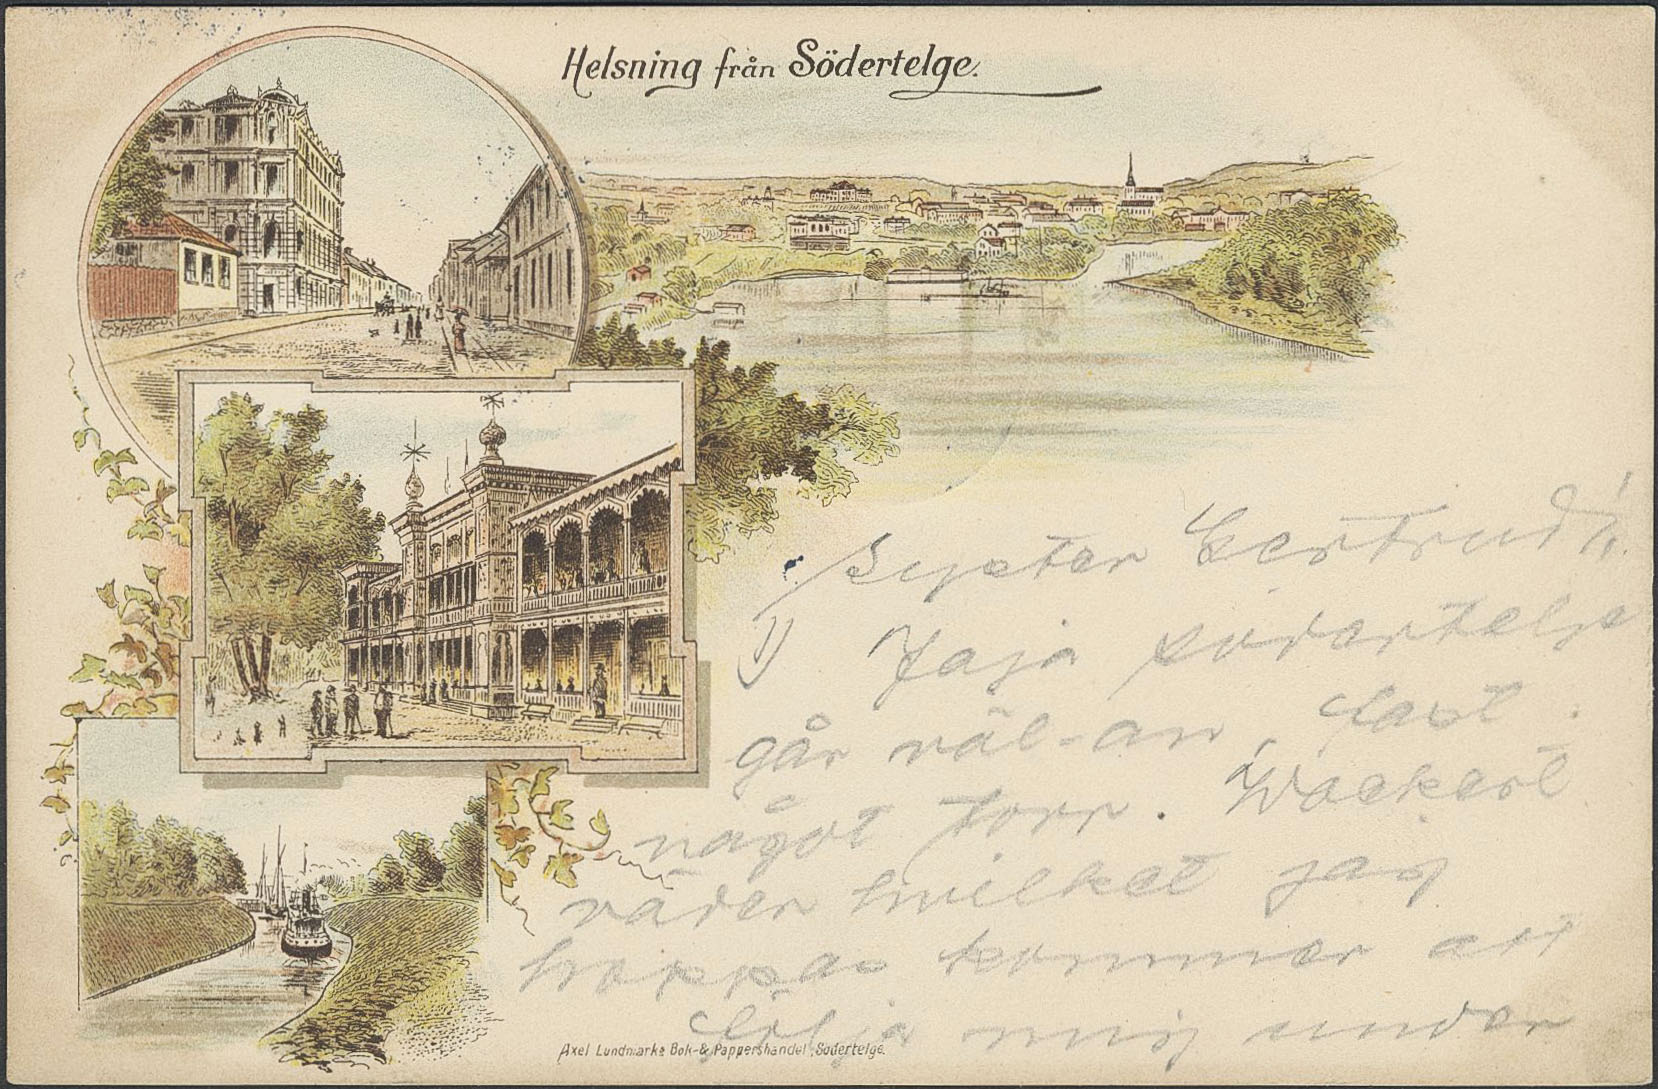 Helsning från Södertelge.
Syster Gertrud!
Jaja Södertelje
går väl-an, fast
något torr. Wackert
väder hvilket jag
hoppas kommer att
följa mig under
Axel Lundmarks Bok-& Pappershandel, Södertelge.